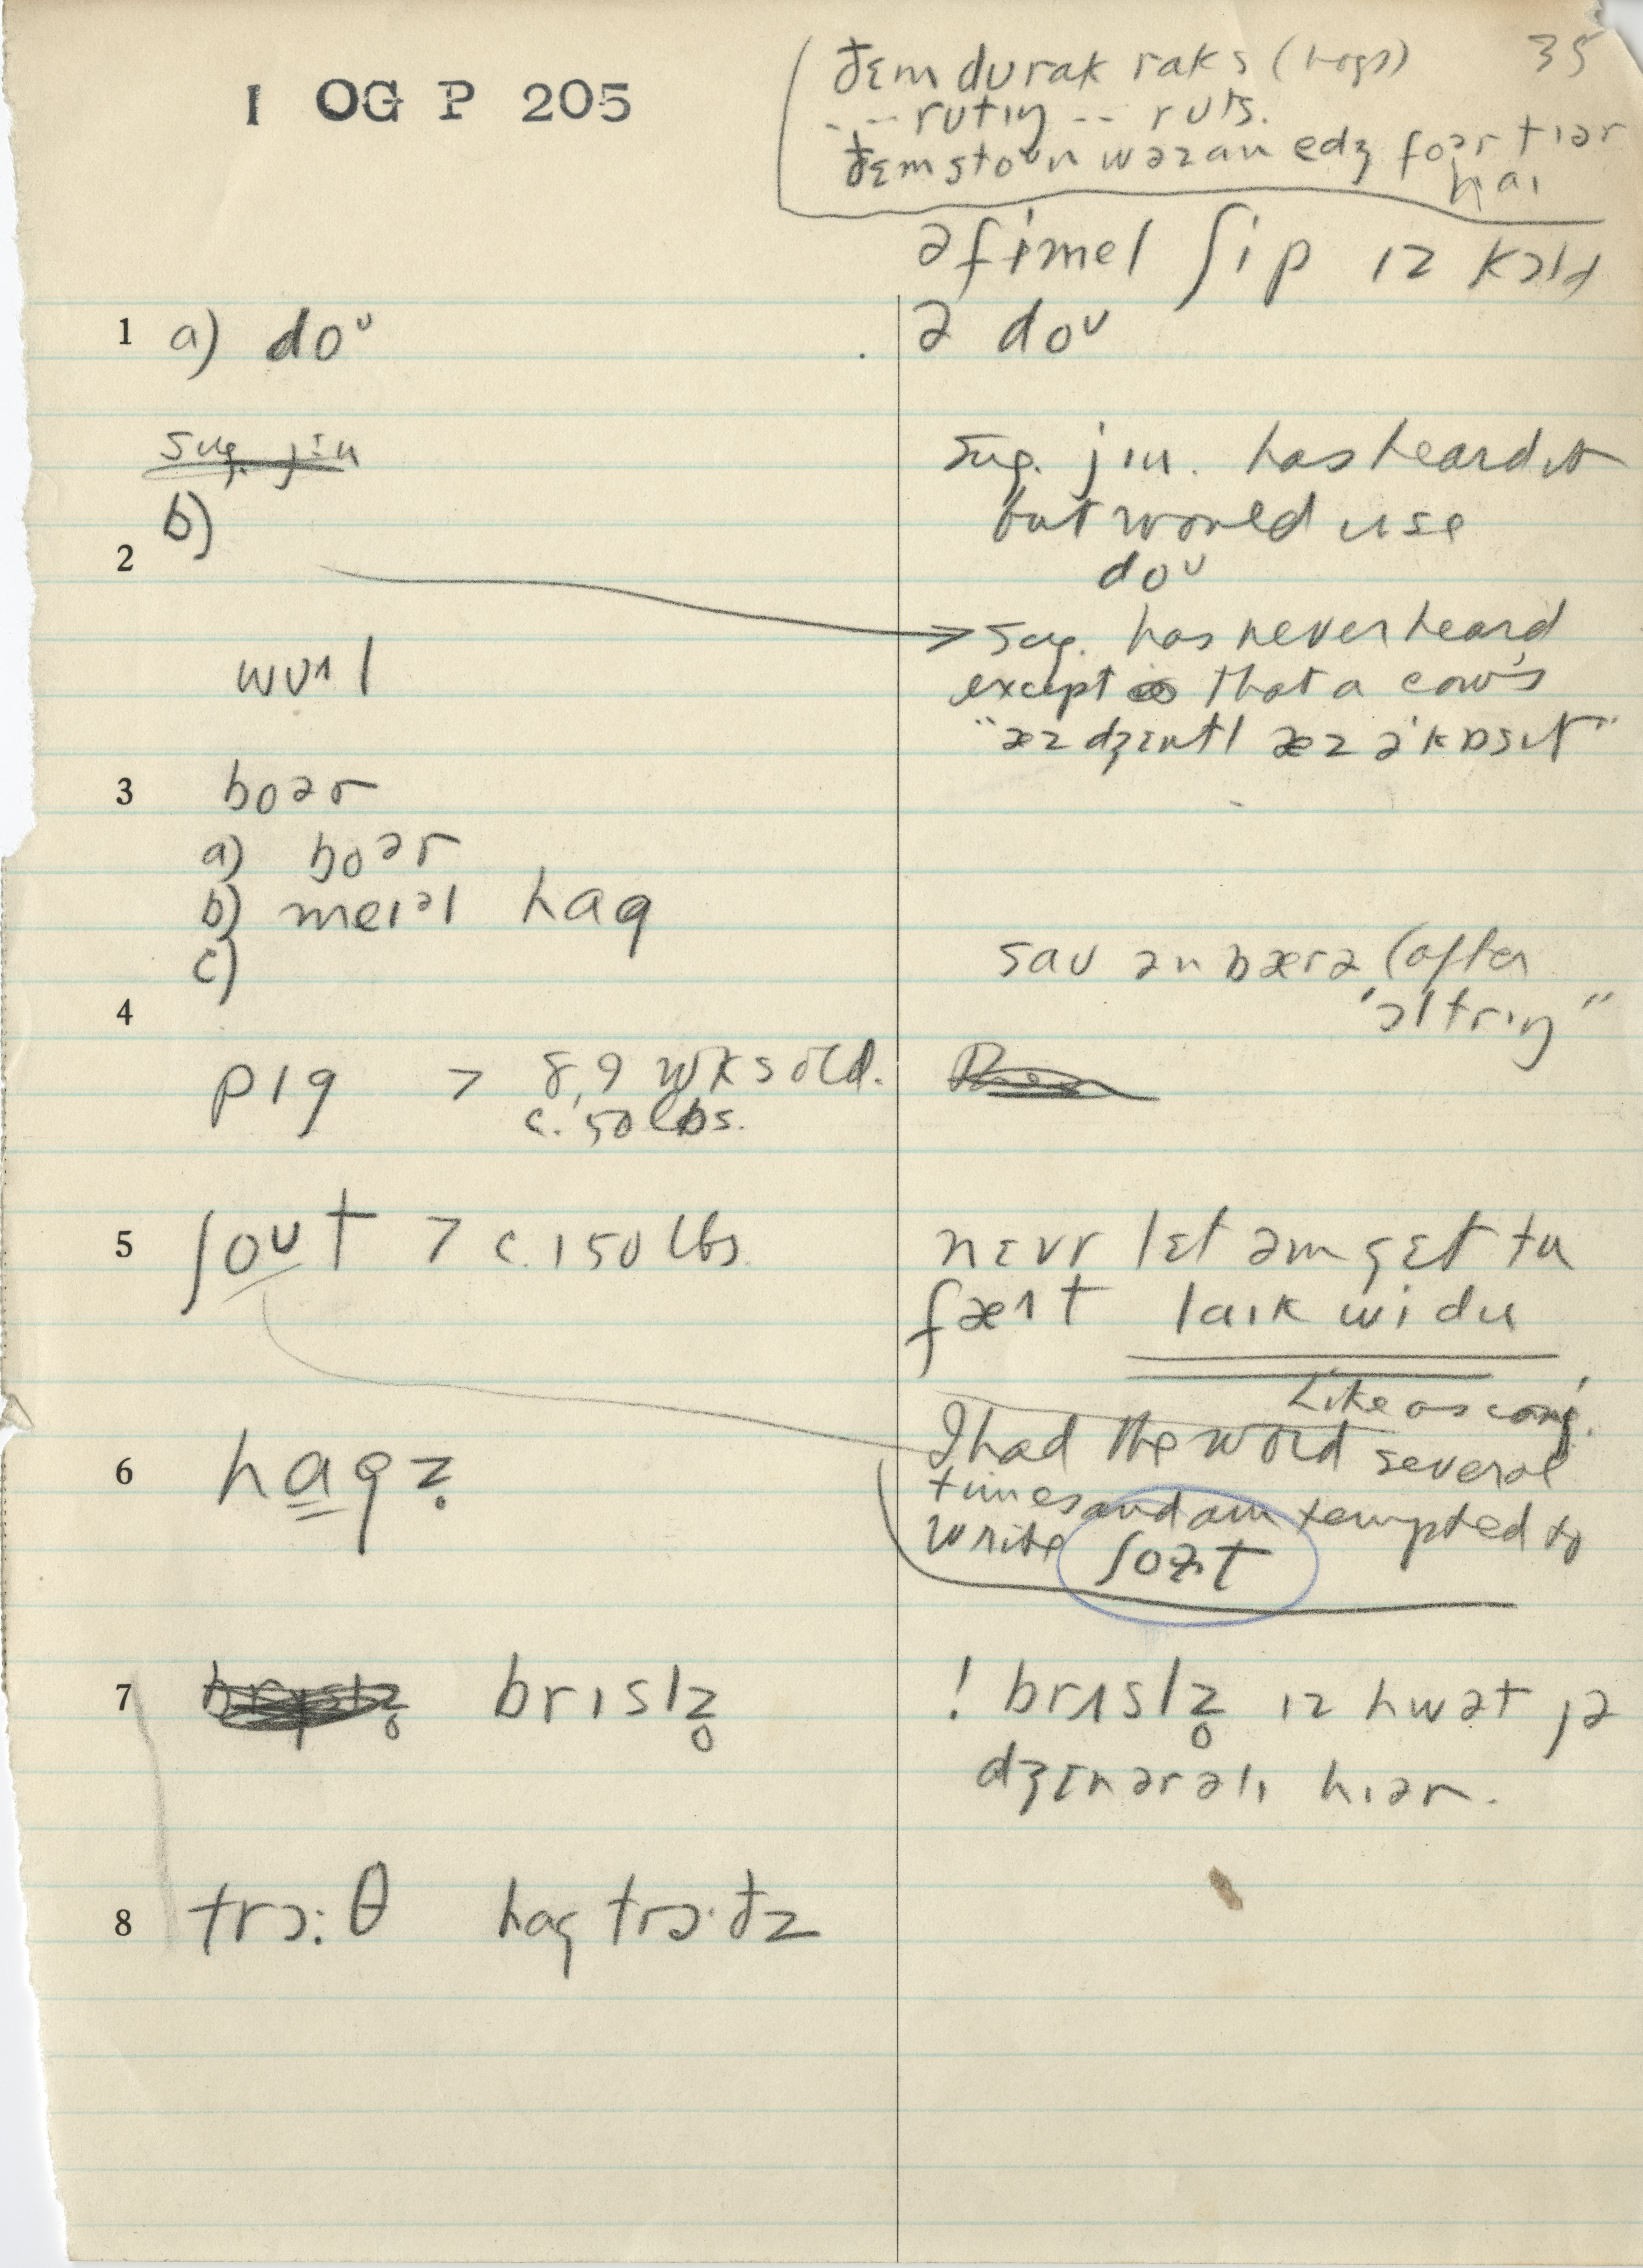 I OG P 205
35
ðɛm durak raks (hogs)
--- rutɪŋ -- ruts.
ðɛm stoᵘn wəz an edʒ foər tɪər
haɪ
ə fimel ʃip ɪz kɔld
ə doᵘ
1 a) doᵘ
sug. jiu
sug. jiu. has heard it
but would use
doᵘ
b)
2
wuᵻl
sug. has never heard
except that a cow's
"æz dʒɛntl æz ə kɒsɪt"
3 boər
a) boər
b) meɪəl hag
c)
sav ən bærə (after
"ɔltrɪŋ"
4
pɪg > 8, 9 wks old.
c. 50 lbs.
5 ʃoᵘt > c. 150 lbs.
nɛvr lɛt əm gɛt tu
fæᵻt laɪk wi du
Like as conj.
I had the word several
times and am tempted to
write ʃoɜt
6 hagz̥
7 brɪslz̥ brɪslz̥
! brɪslz̥ ɪz hwət jə
dʒɛnərəlɪ hɪər.
8 trɔ:θ hag trɔ·ðz